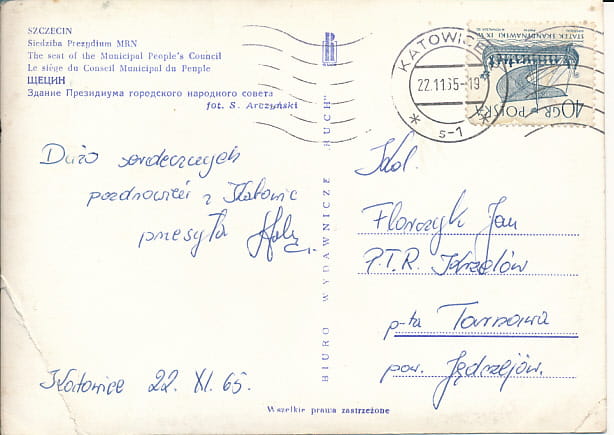 SZCZECIN
Siedziba Prezydium MRN
The seat of the Municipal People's Council
Le siège du Conseil Municipal du Peuple
ЩЕЦИН
Здание Президиума городского народного совета
fot. S. Arczyński
Dużo serdecznych
pozdrowień z Katowic
przesyła
Katowice 22. XI. 65.
BIURO WYDAWNICZE "RUCH"
KATOWICE
22.11.65-19
s-1
STATEK SKANDYNAWSKI IX W.
40 GR POLSKA
Kol.
Florczyk Jan
P.T.R.
p-ta Tarnawa
pow. Jędrzejów.
Wszelkie prawa zastrzeżone